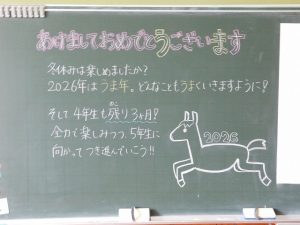 あけましておめでとうございます
冬休みは楽しめましたか?
2026年はうま年。どんなこともうまくいきますように!
そして4年生も残り3ヶ月!
全力で楽しみつつ、5年生に
向かってつき進んでいこう!!
2026